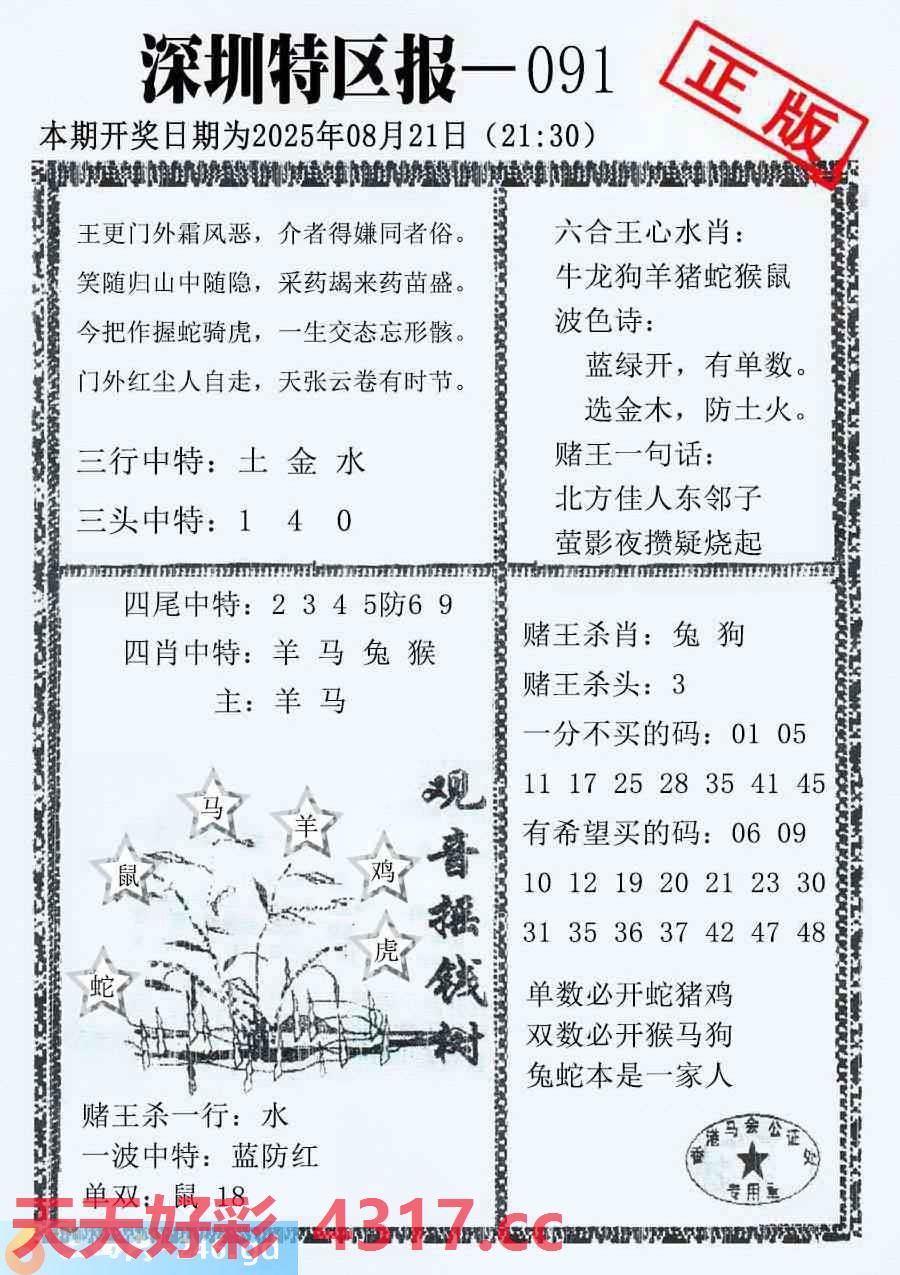 深圳特区报－091
正版
本期开奖日期为2025年08月21日（21:30）
王更门外霜风恶，介者得嫌同者俗。
笑随归山中随隐，采药朅来药苗盛。
今把作握蛇骑虎，一生交态忘形骸。
门外红尘人自走，天张云卷有时节。
三行中特：土 金 水
三头中特：1 4 0
六合王心水肖：
牛龙狗羊猪蛇猴鼠
波色诗：
蓝绿开，有单数。
选金木，防土火。
赌王一句话：
北方佳人东邻子
萤影夜攒疑烧起
四尾中特：2 3 4 5防6 9
四肖中特：羊 马 兔 猴
主：羊 马
马
羊
鼠
鸡
虎
蛇
观音摇钱树
赌王杀一行：水
一波中特：蓝防红
单双：鼠 18
赌王杀肖：兔 狗
赌王杀头：3
一分不买的码：01 05
11 17 25 28 35 41 45
有希望买的码：06 09
10 12 19 20 21 23 30
31 35 36 37 42 47 48
单数必开蛇猪鸡
双数必开猴马狗
兔蛇本是一家人
香港马会公证处
专用章
天天好彩 4317.cc